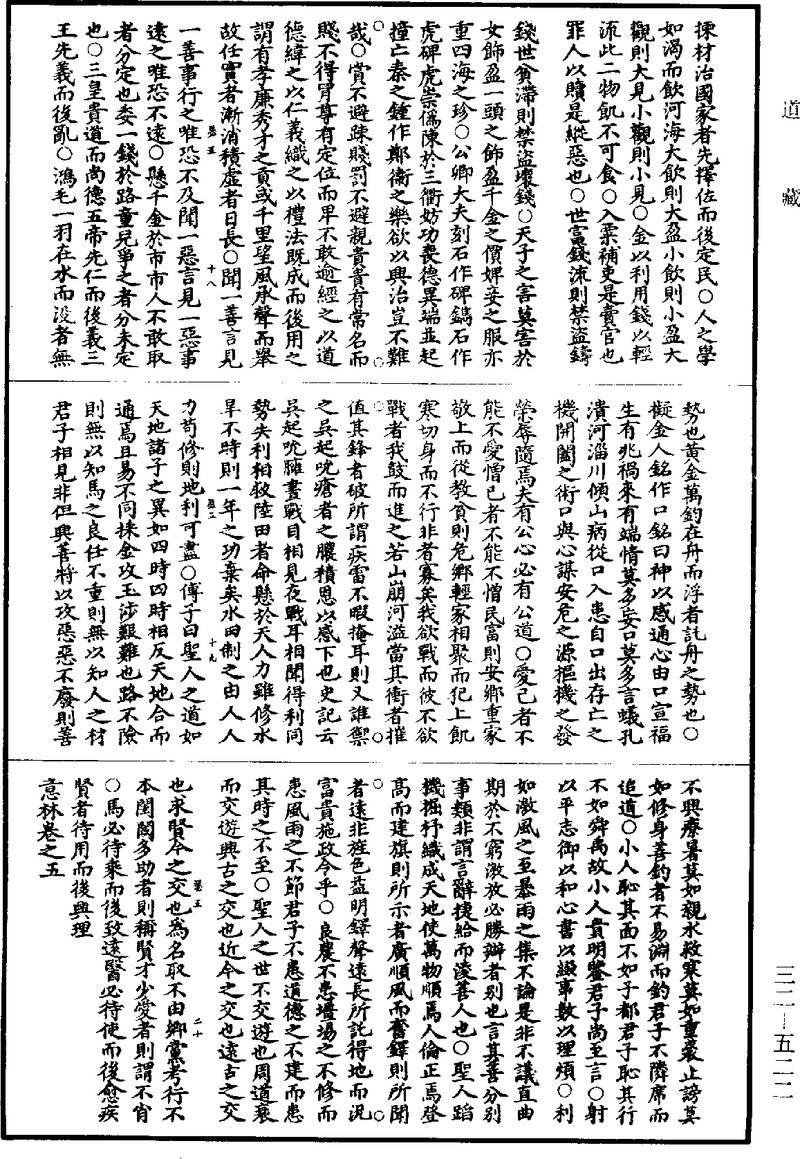 道藏
揀材治國家者先擇佐而後定民○人之學
如渴而飲河海大飲則大盈小飲則小盈大
觀則大見小觀則小見○金以利用錢以輕
流此二物飢不可食○入粟補吏是賣官也
罪人以贖是縱惡也○世富錢流則禁盜鑄
錢世貧滯則禁盜壞錢○天子之害莫害於
女飾盈一頭之飾盈千金之價婢妾之服亦
重四海之珍○公卿大夫刻石作碑鐫石作
虎碑虎崇偽陳於三衢妨功喪德異端並起
撞亡秦之鍾作鄭衛之樂欲以興治豈不難
哉○賞不避疎賤罰不避親貴貴有常名而
賤不得冐尊有定位而卑不敢逾經之以道
德緯之以仁義織之以禮法既成而後用之
謂有孝廉秀才之貢或千里望風承聲而舉
故任實者漸消積虛者日長○聞一善言見
一善事行之唯恐不及聞一惡言見一惡事
遠之唯恐不遠○懸千金於市市人不敢取
者分定也委一錢於路童兒爭之者分未定
也○三皇貴道而尚德五帝先仁而後義三
王先義而後亂○鴻毛一羽在水而没者無
勢也黃金萬鈞在舟而浮者託舟之勢也○
擬金人銘作口銘曰神以感通心由口宣福
生有兆禍來有端情莫多妄口莫多言蟻孔
潰河溜川傾山病從口入患自口出存亡之
機開闔之術口與心謀安危之源樞機之發
榮辱隨焉夫有公心必有公道○愛己者不
能不愛憎己者不能不憎民富則安鄉重家
敬上而從教貧則危鄉輕家相聚而犯上飢
寒切身而不行非者寡矣我欲戰而彼不欲
戰者我鼓而進之若山崩河溢當其衝者摧
值其鋒者破所謂疾雷不暇掩耳則又誰禦
之吳起吮瘡者之膿積恩以感下也史記云
吳起吮膿晝戰目相見夜戰耳相聞得利同
勢失利相救陸田者命懸於天人力雖修水
旱不時則一年之功棄矣水田制之由人人
力苟修則地利可盡○傅子曰聖人之道如
天地諸子之異如四時四時相反天地合而
通焉且易不同揀金攻玉涉艱難也路不險
則無以知馬之良任不重則無以知人之材
君子相見非但興善將以攻惡惡不廢則善
不興療暑莫如親水救寒莫如重裘止謗莫
如修身善釣者不易淵而釣君子不隣席而
追道○小人恥其面不如子都君子恥其行
不如舜禹故小人貴明鑒君子尚至言○射
以平志御以和心書以綴事數以理煩○利
如激風之至暴雨之集不論是非不議直曲
期於不窮激放必勝辯者別也言其善分別
事類非謂言辭捷給而淩善人也○聖人蹈
機握杼織成天地使萬物順焉人倫正焉登
高而建旗則所示者廣順風而奮鐸則所聞
者遠非旌色益明鐸聲遠長所託得地而況
富貴施政令乎○良農不患壃場之不修而
患風雨之不節君子不患道德之不建而患
其時之不至○聖人之世不交遊也周道衰
而交遊興古之交也近今之交也遠古之交
也求賢今之交也為名取不由鄉黨考行不
本閨閾多助者則稱賢才少愛者則謂不肖
○馬必待乘而後致遠醫必待使而後愈疾
賢者待用而後興理
意林卷之五
三二—五二二